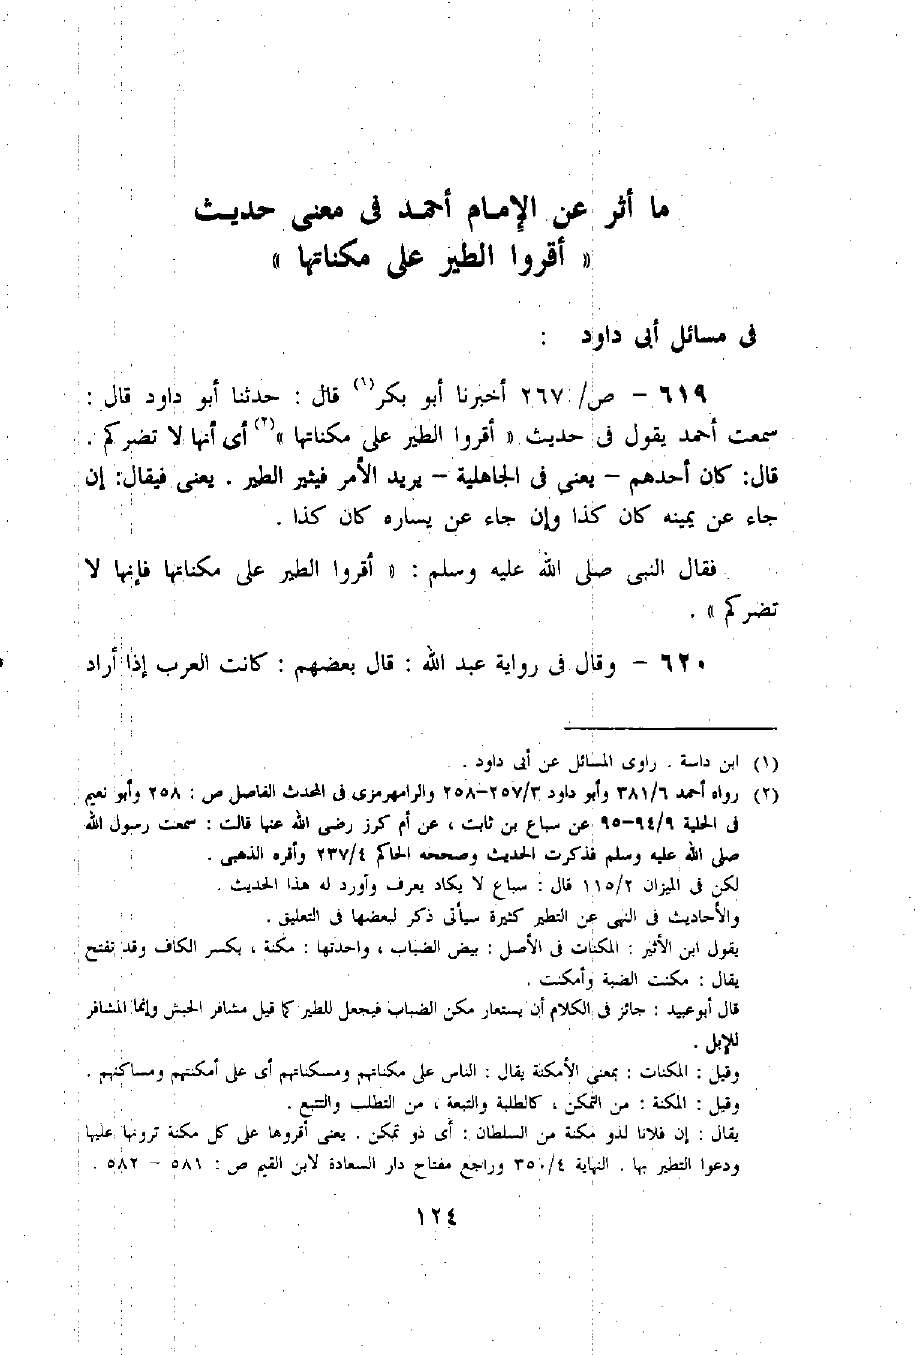 ما أثر عن الإمام أحمد فى معنى حديث
« أقروا الطير على مكناتها »
فى مسائل أبى داود :
٦١٩ – ص/ ٢٦٧ أخبرنا أبو بكر(١) قال : حدثنا أبو داود قال :
سمعت أحمد يقول فى حديث « أقروا الطير على مكناتها »(٢) أى أنها لا تضركم .
قال: كان أحدهم – يعنى فى الجاهلية – يريد الأمر فيثير الطير . يعنى فيقال: إن
جاء عن يمينه كان كذا وإن جاء عن يساره كان كذا .
فقال النبى صلى الله عليه وسلم : « أقروا الطير على مكناتها فإنها لا
تضركم » .
٦٢٠ – وقال فى رواية عبد الله : قال بعضهم : كانت العرب إذا أراد
(١) ابن داسة . راوى المسائل عن أبى داود .
(٢) رواه أحمد ٣٨١/٦ وأبو داود ٢٥٧/٣–٢٥٨ والرامهرمزى فى المحدث الفاصل ص : ٢٥٨ وأبو نعيم
فى الحلية ٩٤/٩–٩٥ عن سباع بن ثابت ، عن أم كرز رضى الله عنها قالت : سمعت رسول الله
صلى الله عليه وسلم فذكرت الحديث وصححه الحاكم ٢٣٧/٤ وأقره الذهبى .
لكن فى الميزان ١١٥/٢ قال : سباع لا يكاد يعرف وأورد له هذا الحديث .
والأحاديث فى النهى عن التطير كثيرة سيأتى ذكر لبعضها فى التعليق .
يقول ابن الأثير : المكنات فى الأصل : بيض الضباب ، واحدتها : مكنة ، بكسر الكاف وقد تفتح
يقال : مكنت الضبة وأمكنت .
قال أبو عبيد : جائز فى الكلام أن يستعار مكن الضباب فيجعل للطير كما قيل مشافر الحبش وإنما المشافر
للإبل .
وقيل : المكنات : بمعنى الأمكنة يقال : الناس على مكناتهم ومسكناتهم أى على أمكنتهم ومساكنهم .
وقيل : المكنة : من التمكن ، كالطلبة والتبعة ، من التطلب والتتبع .
يقال : إن فلانا لذو مكنة من السلطان : أى ذو تمكن . يعنى أقروها على كل مكنة ترونها عليها
ودعوا التطير بها . النهاية ٣٥٠/٤ وراجع مفتاح دار السعادة لابن القيم ص : ٥٨١ – ٥٨٢ .
١٢٤